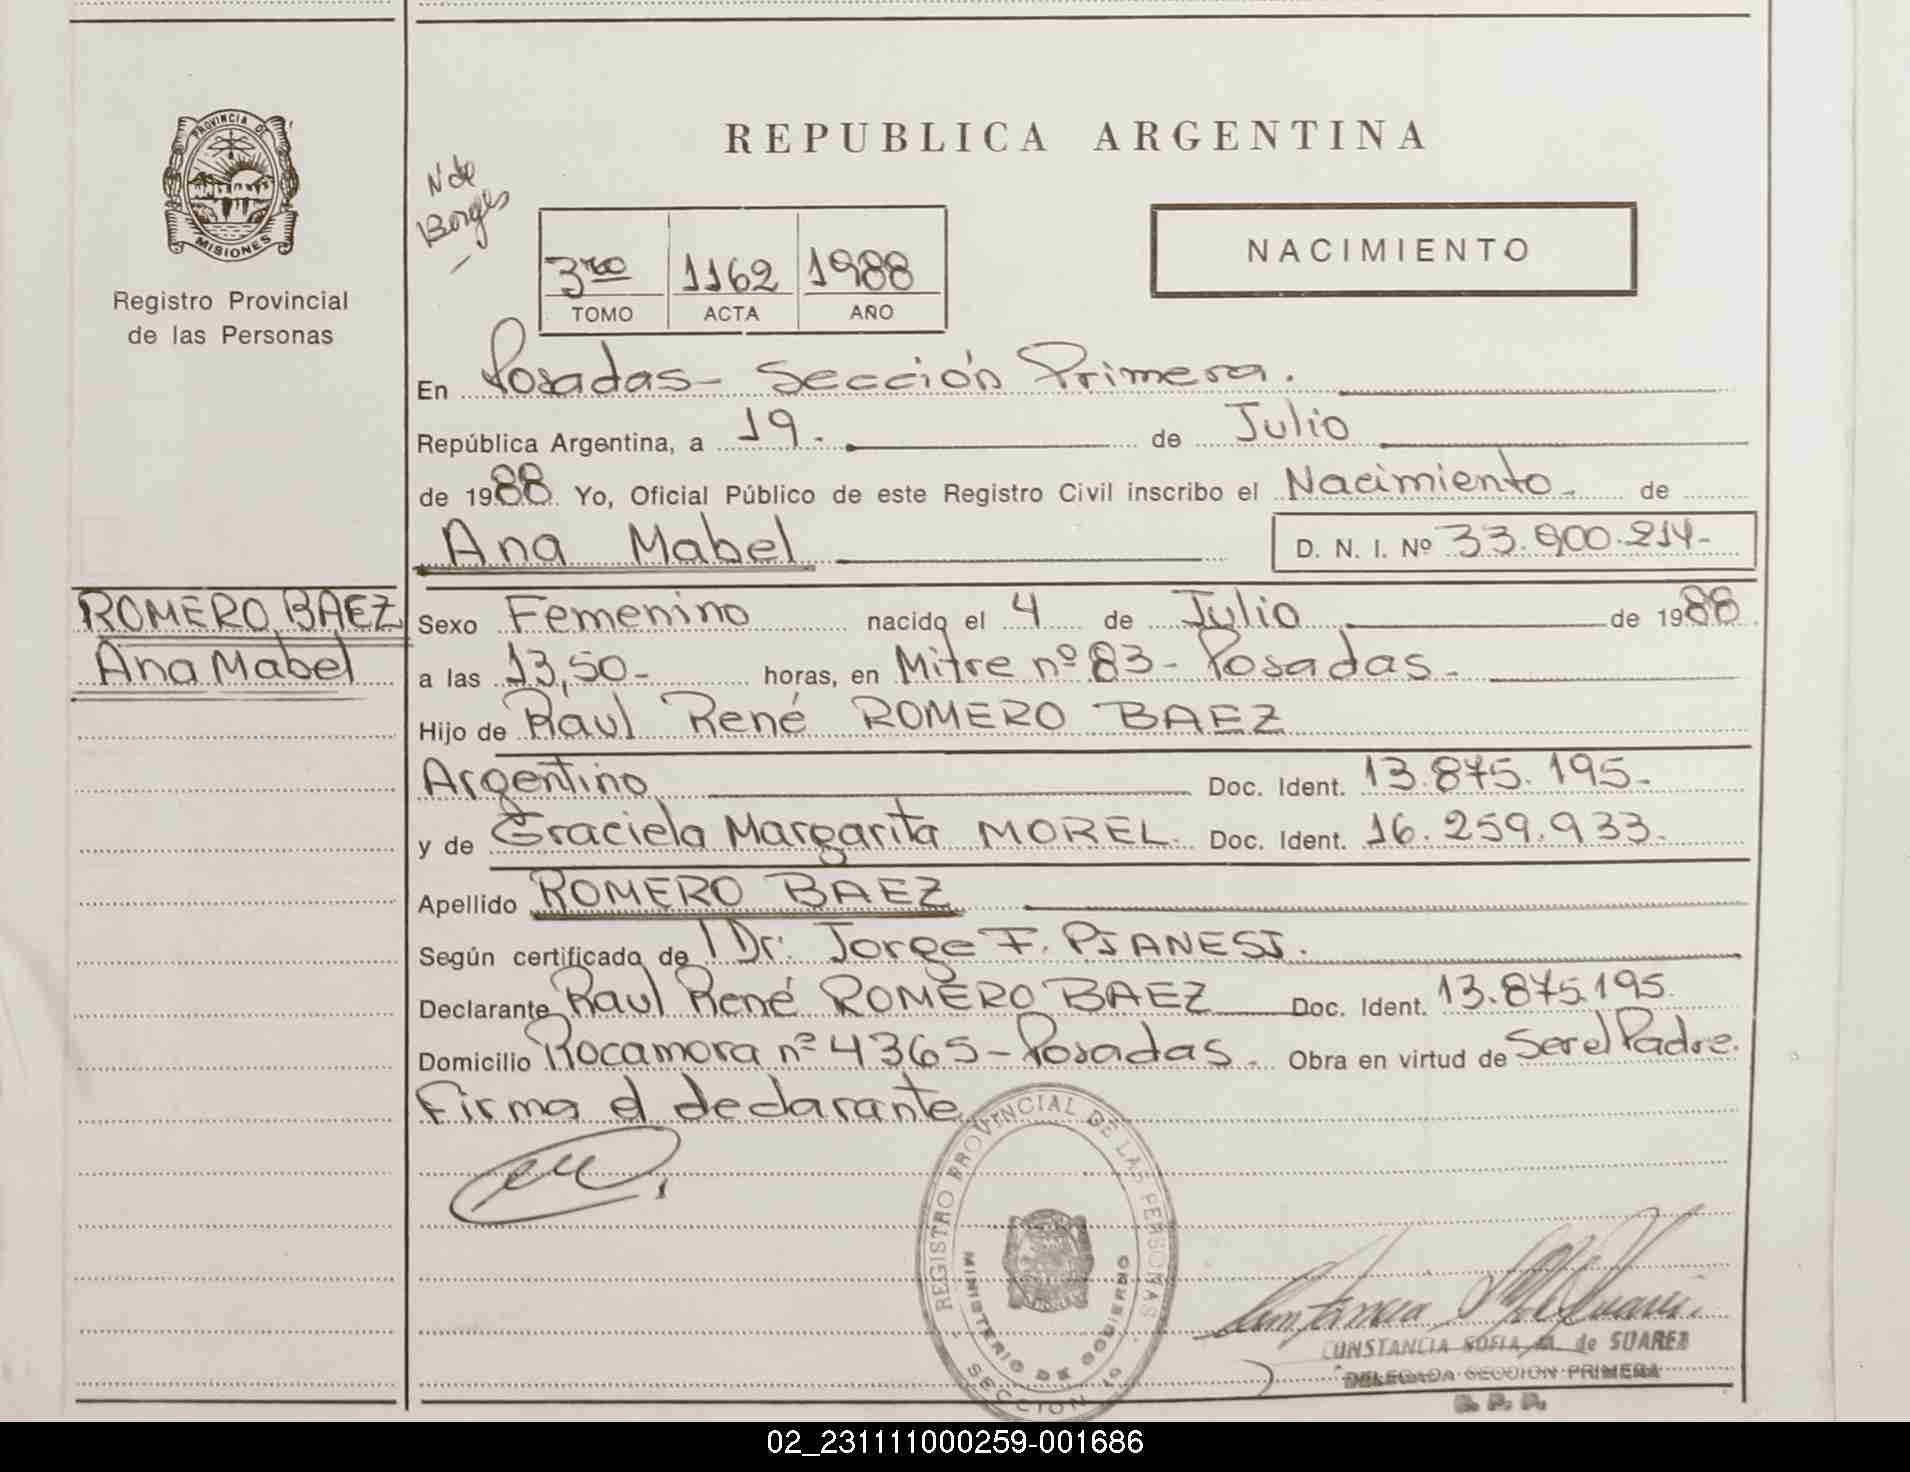 PROVINCIA DE
MISIONES
Registro Provincial
de las Personas
ROMERO BAEZ
Ana Mabel
REPUBLICA ARGENTINA
N de
Borges
NACIMIENTO
3ro 1162 1988
TOMO ACTA AÑO
En Posadas - Sección Primera.
República Argentina, a 19. de Julio
de 1988. Yo, Oficial Público de este Registro Civil inscribo el Nacimiento. de
Ana Mabel D. N. I. Nº 33.900.214-
Sexo Femenino nacido el 4 de Julio de 1988.
a las 13,50- horas, en Mitre nº 83- Posadas.
Hijo de Raul René ROMERO BAEZ
Argentino Doc. Ident. 13.875.195.
y de Graciela Margarita MOREL. Doc. Ident. 16.259.933.
Apellido ROMERO BAEZ
Según certificado de Dr. Jorge F. PIANESI.
Declarante Raul René ROMERO BAEZ Doc. Ident. 13.875.195.
Domicilio Rocamora nº 4365 - Posadas. Obra en virtud de Ser el Padre.
Firma el declarante
REGISTRO PROVINCIAL DE LAS PERSONAS
MINISTERIO DE GOBIERNO
SECCION 1º
CONSTANCIA SOFIA M. de SUAREZ
DELEGADA SECCION PRIMERA
R. P. P.
02_231111000259-001686